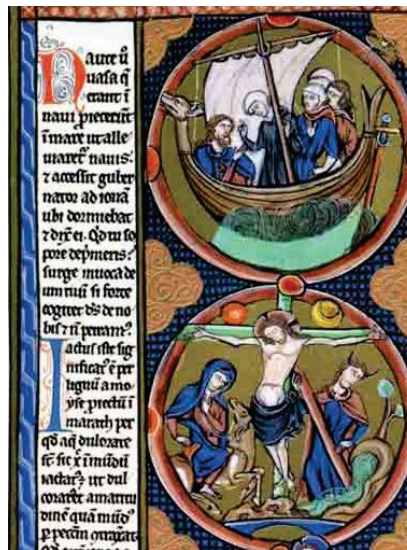 Naute ū
uasa q̄
erant ī
naui proiecerūt
ī mare ut alle
uiaret' nauis.
⁊ accessit guber
nator ad ionā
ubi dormiebat
⁊ dix̄ ei. Qd tu so
pore dep̄meris?
surge inuoca de
um tuū si forte
cogitet ds̄ de no
bis ⁊ n̄ peream'?
Iactus iste sig
nificat' ē per
lignū a mo
yse proiectū ī
marath per
qd aq̄ dulcorate
st̄. sic x̄ ī mūdū
iactat' ē ut dul
coraret amaritu
dinē quā mūd'